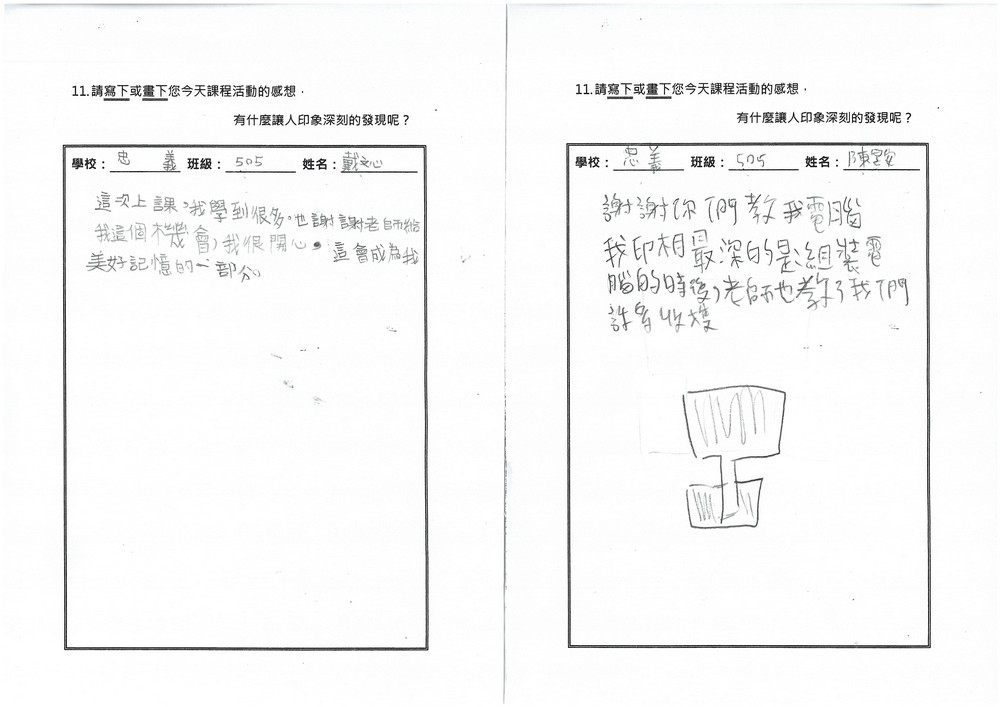 11.請寫下或畫下您今天課程活動的感想，
有什麼讓人印象深刻的發現呢？
學校：忠 義 班級：505 姓名：戴文心
這次上課，我學到很多。也謝謝老師給
我這個機會，我很開心。這會成為我
美好記憶的一部分。
11.請寫下或畫下您今天課程活動的感想，
有什麼讓人印象深刻的發現呢？
學校：忠 義 班級：505 姓名：陳
謝謝你們教我電腦
我印相最深的是組裝電
腦的時後，老師也教了我們
許多收獲